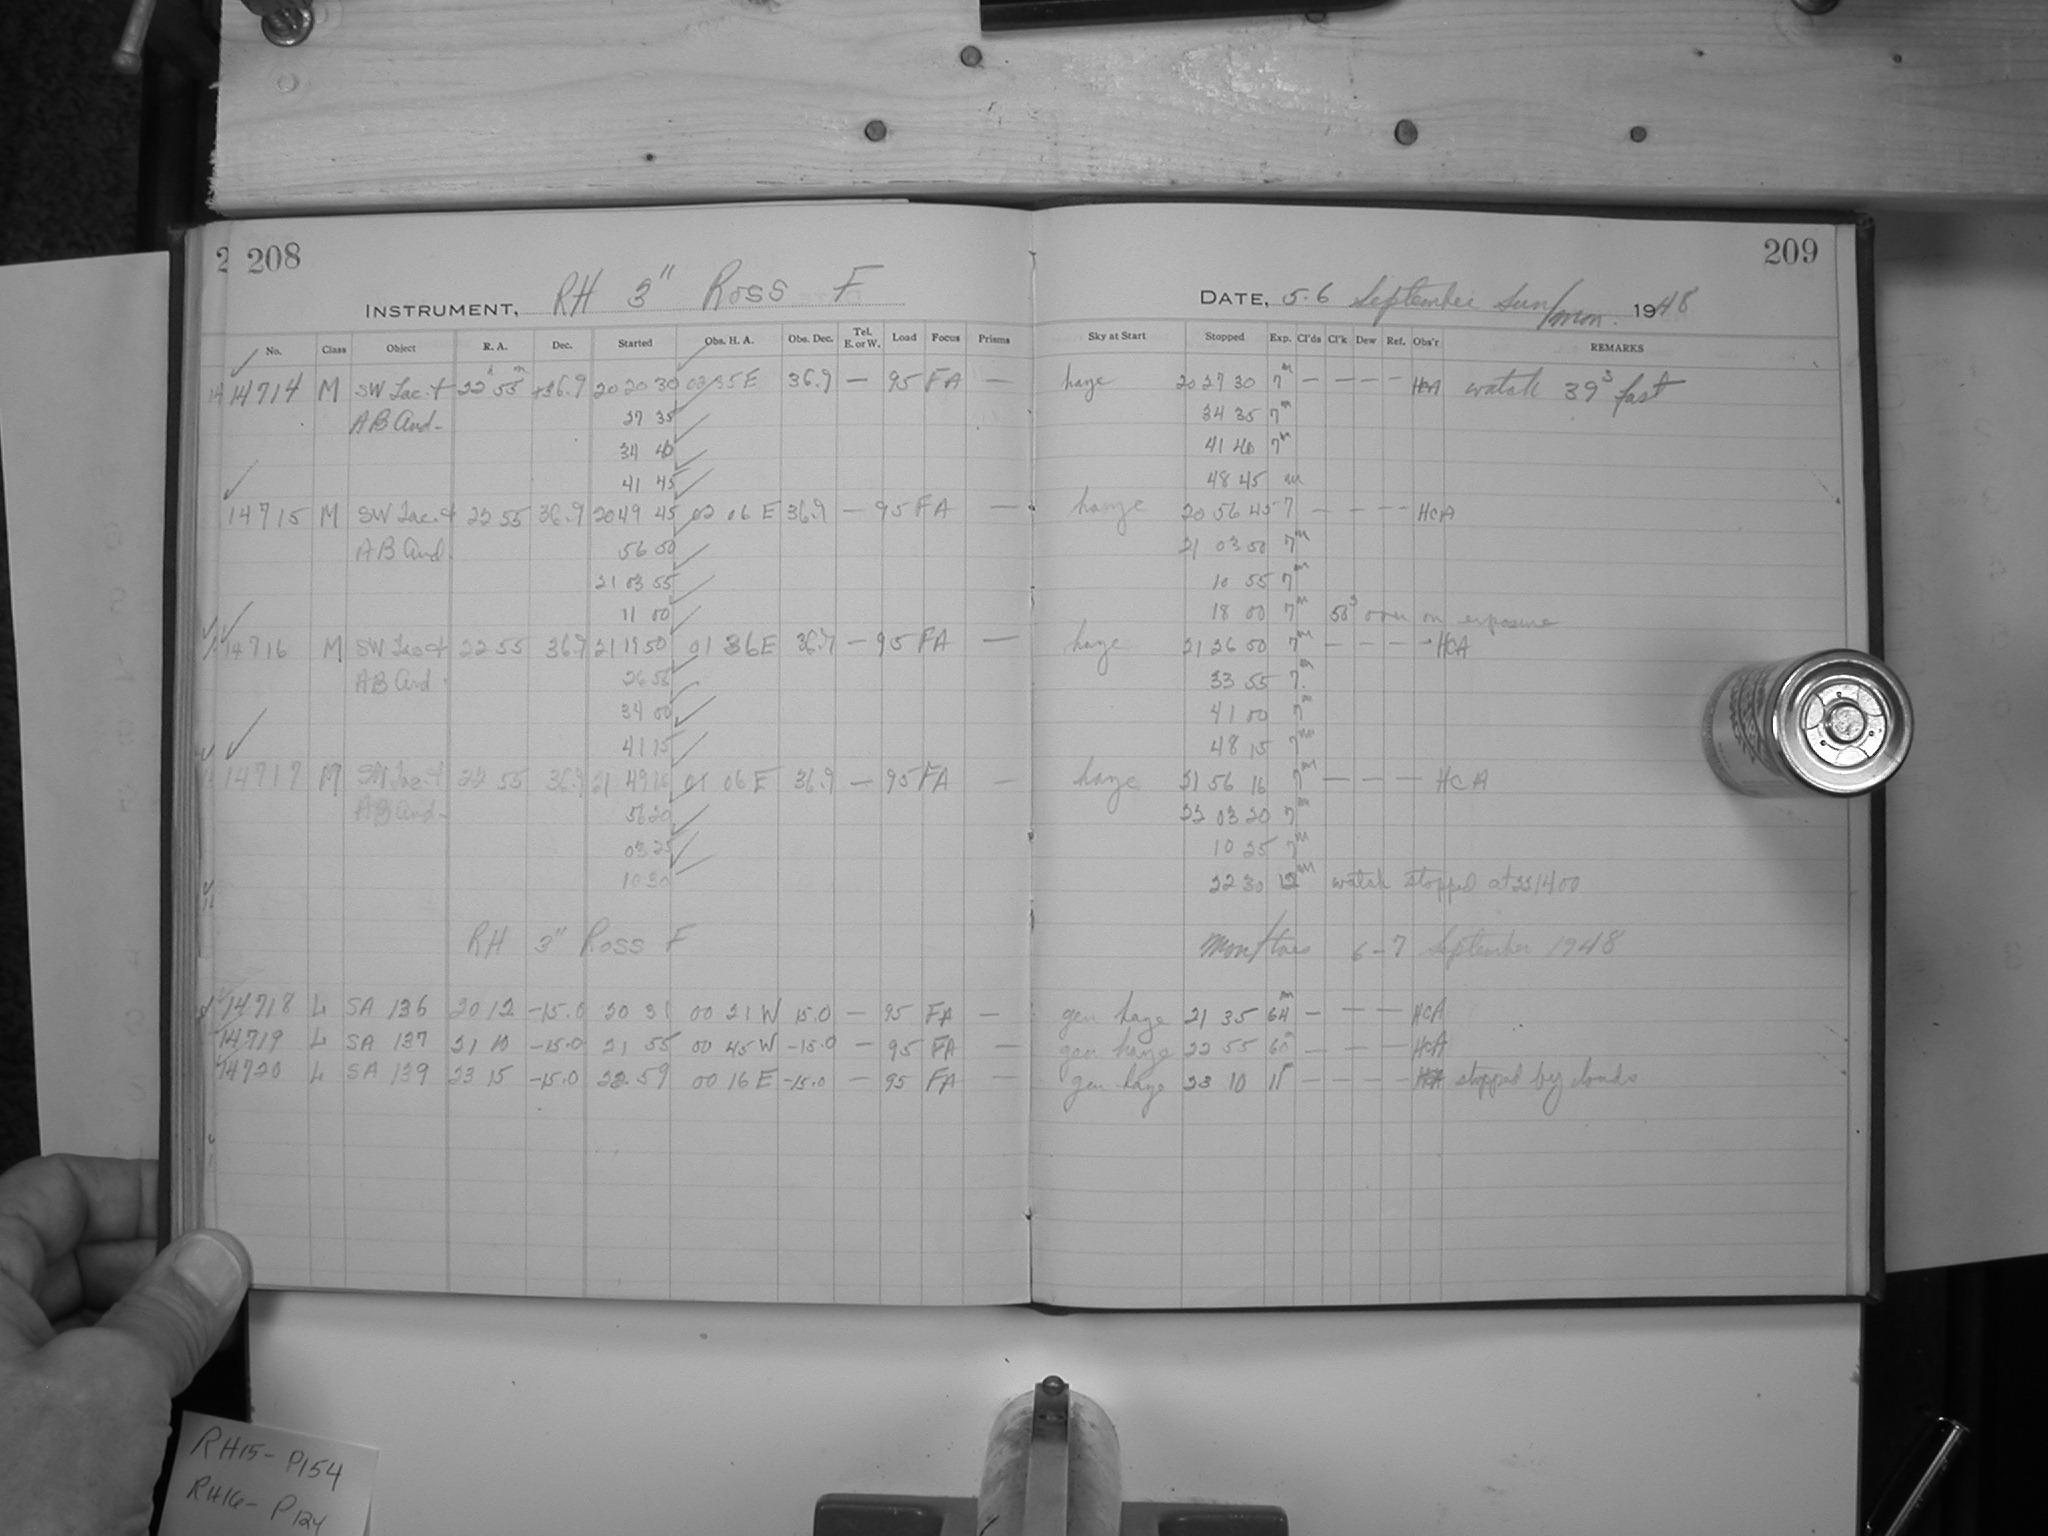 208
INSTRUMENT, RH 3" Ross F
No. Class Object R. A. Dec. Started Obs. H. A. Obs. Dec. Tel. E. or W. Load Focus Prisms
14714 M SW Lac. + 22h 55m +36.9 20 20 30 02 35 E 36.9 — 95 FA —
AB And. 27 35
34 40
41 45
14715 M SW Lac. + 22 55 36.9 20 49 45 02 06 E 36.9 — 95 FA —
AB And. 56 50
21 03 55
11 00
14716 M SW Lac + 22 55 36.9 21 19 50 01 36 E 36.9 — 95 FA —
AB And. 26 55
34 00
41 15
14717 M SW Lac. + 22 55 36.9 21 49 16 01 06 E 36.9 — 95 FA —
AB And. 56 20
03 25
10 30
RH 3" Ross F
14718 L SA 136 20 12 -15.0 20 31 00 21 W 15.0 — 95 FA —
14719 L SA 137 21 10 -15.0 21 55 00 45 W -15.0 — 95 FA —
14720 L SA 139 23 15 -15.0 22 59 00 16 E -15.0 — 95 FA —
209
DATE, 5-6 September Sun/Mon. 1948
Sky at Start Stopped Exp. Cl'ds Cl'k Dew Ref. Obs'r REMARKS
haze 20 27 30 7m — — — — HCA watch 39s fast
34 35 7m
41 40 7m
48 45 m
haze 20 56 45 7 — — — — HCA
21 03 50 7m
10 55 7m
18 00 7m 50s over on exposure
haze 21 26 50 7m — — — — HCA
33 55 7m
41 00 7m
48 15 7m
haze 21 56 16 7m — — — HCA
22 03 20 7m
10 25 7m
22 30 12m watch stopped at 22 14 00
Mon/tues 6-7 September 1948
gen haze 21 35 64m — — — — HCA
gen haze 22 55 60 — — — — HCA
gen haze 23 10 11 — — — — HCA stopped by clouds
RH15- P154
RH16- P124